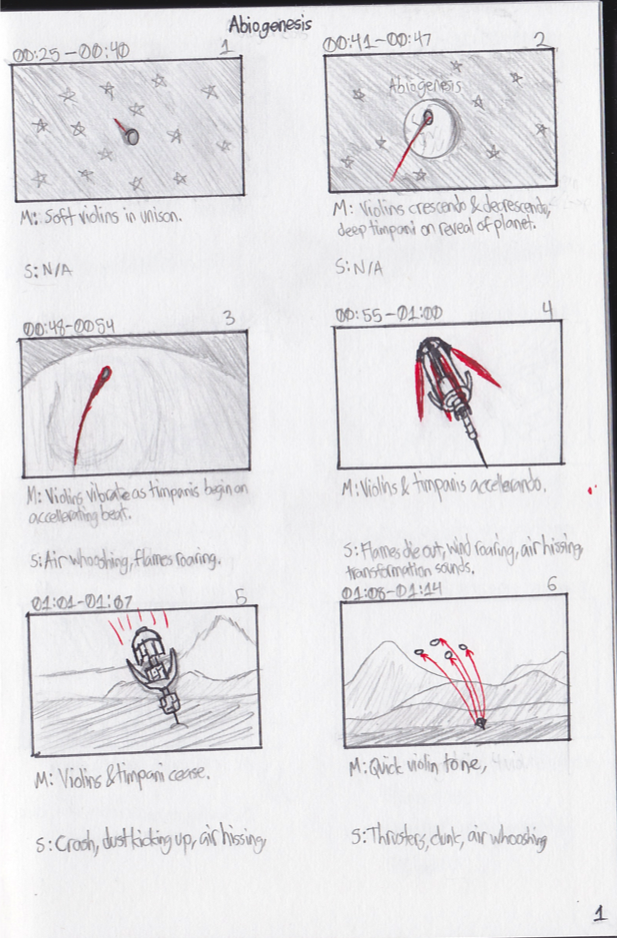 Abiogenesis
00:25-00:40 1
M: Soft violins in unison.
S: N/A
00:41-00:47 2
Abiogenesis
M: Violins crescendo & decrescendo,
deep timpani on reveal of planet.
S: N/A
00:48-0054 3
M: Violins vibrate as timpanis begin on
accelerating beat.
S: Air whooshing, flames roaring.
00:55-01:00 4
M: Violins & timpanis accelerando.
S: Flames die out, wind roaring, air hissing,
transformation sounds.
01:01-01:07 5
M: Violins & timpani cease.
S: Crash, dust kicking up, air hissing,
01:08-01:14 6
M: Quick violin tone,
S: Thrusters, clunk, air whooshing
1